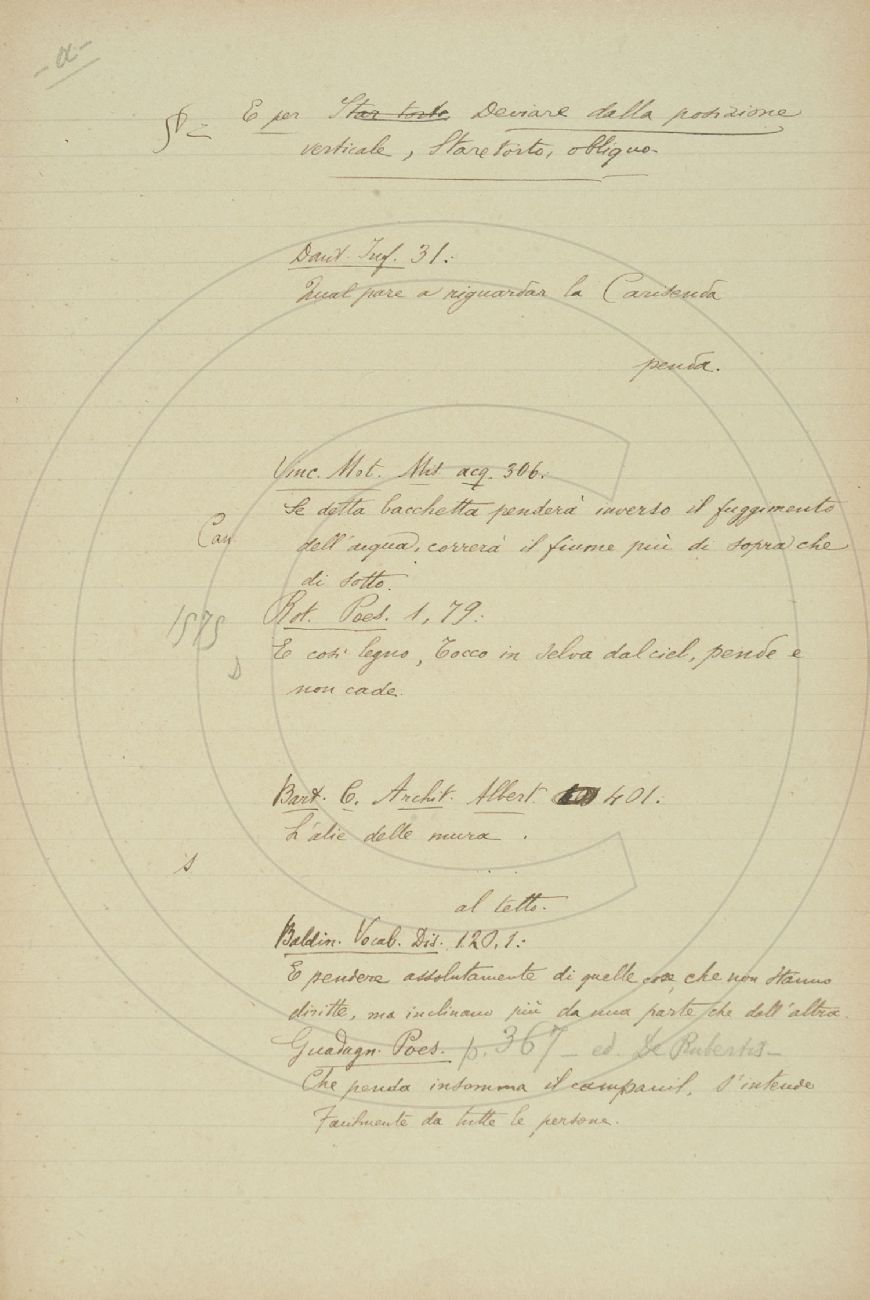 -a-
§ = E per ~~Star torto~~ Deviare dalla posizione
verticale, Stare torto, obliquo.
Dant. Inf. 31:
Qual pare a riguardar la Carisenda
penda.
Vinc. Mot. Mis acq. 306:
Se detta bacchetta penderà inverso il fuggimento
Can dell'acqua, correrà il fiume più di sopra che
di sotto.
1575 Rot. Poes. 1, 79:
E così legno, tocco in selva dal ciel, pende e
D non cade.
Bart. C. Archit. Albert. 401:
L'alie delle mura .
s
al tetto.
Baldin. Vocab. Dis. 120, 1:
E pendere assolutamente di quelle cose, che non stanno
diritte, ma inclinano più da una parte che dall'altra.
Guadagn. Poes. p. 367 - ed. De Rubertis -
Che penda insomma il campanil, s'intende
Facilmente da tutte le persone.